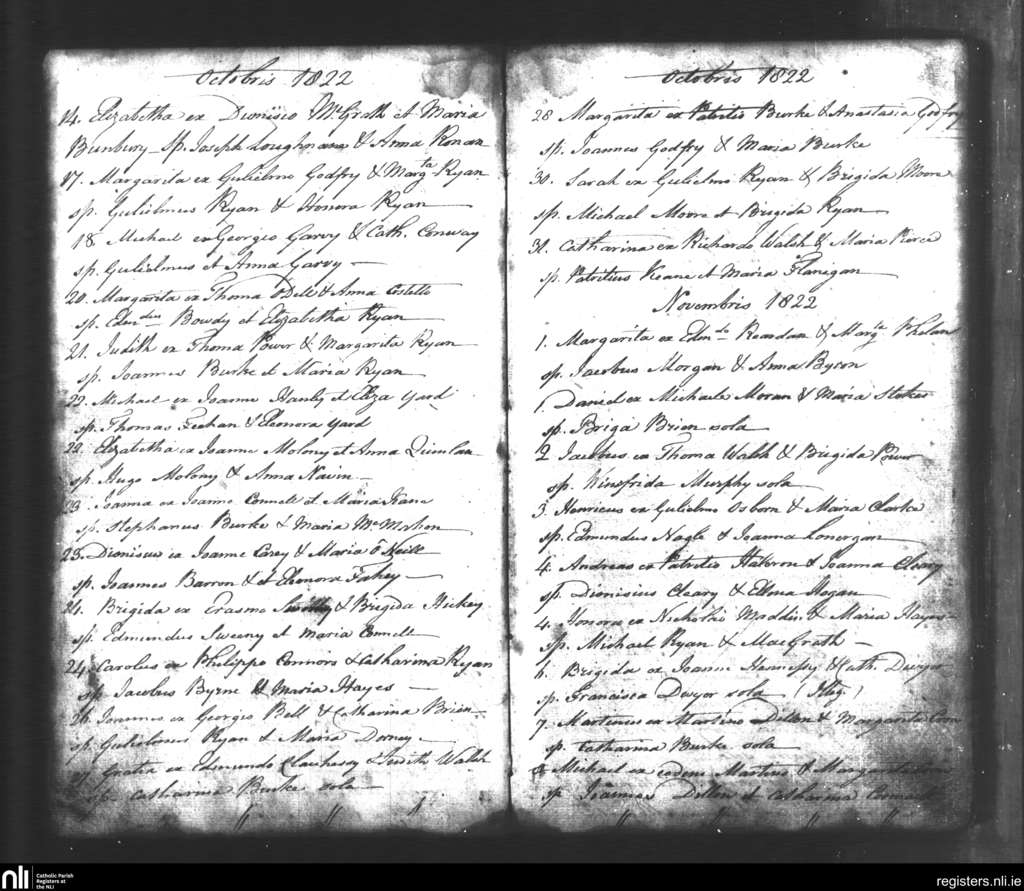 Octobris 1822
14. Elizabetha ex Dionisio McGrath et Maria
Bunbury – sp. Joseph Loughnane & Anna Ronan
17. Margarita ex Gulielmo Godfry & Margta Ryan
sp. Gulielmus Ryan & Honora Ryan
18. Michael ex Georgio Garvy & Cath. Conway
sp. Gulielmus et Anna Garvy
20. Margarita ex Thoma ODell & Anna Costello
sp. Edmdus Bowdy et Elizabetha Ryan
21. Judith ex Thoma Power & Margarita Ryan
sp. Joannes Burke et Maria Ryan
22. Michael ex Joanne Hanly et Eliza Yard
sp. Thomas Feehan & Eleonora Yard
22. Elizabetha ex Joanne Molony et Anna Quinlan
sp. Hugo Molony & Anna Navin
23. Joanna ex Joanne Connell et Maria Kane
sp. Stephanus Burke & Maria McMahon
23. Dionisius ex Joanne Carey & Maria O'Keife
sp. Joannes Barron & et Eleonora Fahey
24. Brigida ex Erasmo & Brigida Hickey
sp. Edmundus Sweeny et Maria Connell
24. Carolus ex Philippo Connors & Catharina Ryan
sp. Jacobus Byrne & Maria Hayes
26. Joannes ex Georgio Bell & Catharina Brien
sp. Gulielmus Ryan et Maria Dorney
27. Gratia ex Edmundo Clanchessy & Judith Walsh
sp. Catharina Burke sola
Octobris 1822
28 Margarita ex Patritio Burke & Anastasia Godfry
sp. Joannes Godfry & Maria Burke
30. Sarah ex Gulielmo Ryan & Brigida Moore
sp. Michael Moore et Brigida Ryan
31. Catharina ex Richardo Walsh & Maria Pierce
sp. Patritius Keane et Maria Flanigan
Novembris 1822
1. Margarita ex Edmdo Reardan & Margta Phelan
sp. Jacobus Morgan & Anna Byron
1. Daniel ex Michaele Moran & Maria Stokes
sp. Briga Brien sola
2 Jacobus ex Thoma Walsh & Brigida Power
sp. Winefrida Murphy sola
3. Henricus ex Gulielmo Osborn & Maria Clarke
sp. Edmundus Nagle & Joanna Lonergan
4. Andreas ex Patritio Halloron & Joanna Cleary
sp. Dionisius Cleary & Ellena Hogan
4. Honora ex Nicholao Maddin & Maria Hayes
sp. Michael Ryan & MacGrath
6. Brigida ex Joanne Hennessy & Cath. Dwyer
sp. Francisca Dwyer sola
7. Martinus ex Martino Dillon & Margarita
sp. Catharina Burke sola
Michael ex eodem Martino & Margarita
sp Joannes Dillon et Catharina
nli
Catholic Parish
Registers at
the NLI
registers.nli.ie